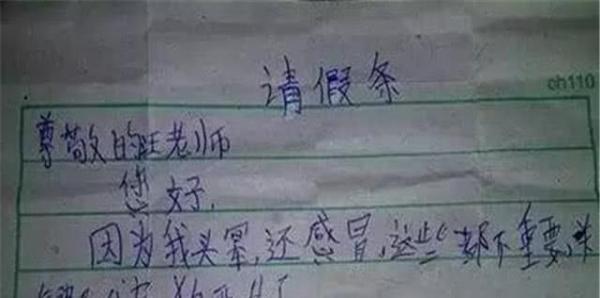 请假条
ch110
尊敬的旺老师
您好,
因为我头晕,还感冒,这些都不重要,关